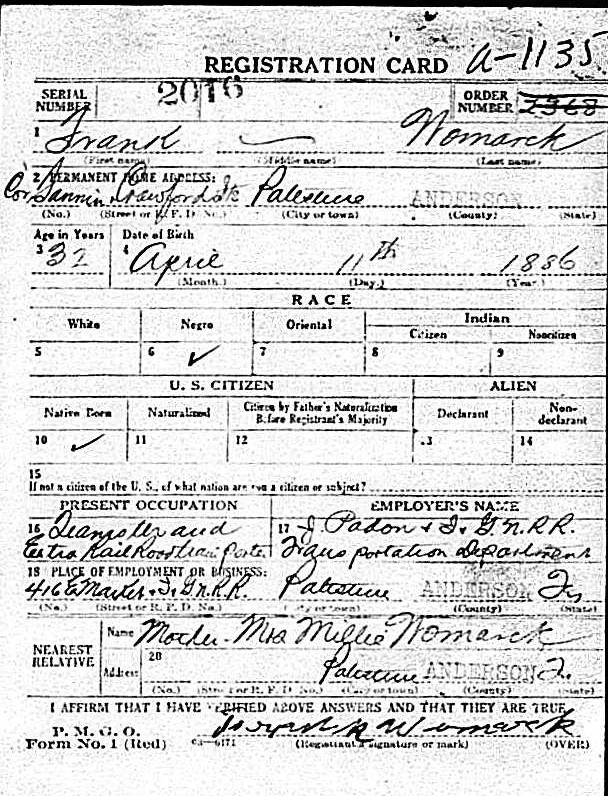 REGISTRATION CARD A-1135
SERIAL NUMBER 2016 ORDER NUMBER 2368
1 Frank — Womarck
(First name) (Middle name) (Last name)
2 PERMANENT HOME ADDRESS:
Cor Fannin & Crawford Sts Palestine ANDERSON
(No.) (Street or R. F. D. No.) (City or town) (County) (State)
Age in Years Date of Birth
3 32 4 April 11th 1886
(Month.) (Day.) (Year.)
RACE
White Negro Oriental Indian
Citizen Noncitizen
5 6 ✓ 7 8 9
U. S. CITIZEN ALIEN
Native Born Naturalized Citizen by Father's Naturalization Before Registrant's Majority Declarant Non-declarant
10 ✓ 11 12 13 14
15
If not a citizen of the U. S., of what nation are you a citizen or subject?
PRESENT OCCUPATION EMPLOYER'S NAME
16 Teamster and 17 J. Padon & I. & G. N. R. R.
Extra Rail Road train Porter Transportation Department
18 PLACE OF EMPLOYMENT OR BUSINESS:
416 E Market & I. & G. N. R. R. Palestine ANDERSON Tx
(No.) (Street or R. F. D. No.) (City or town) (County) (State)
NEAREST RELATIVE
Name Mother - Mrs Millie Womarck
Address 20 Palestine ANDERSON Tx.
(No.) (Street or R. F. D. No.) (City or town) (County) (State)
I AFFIRM THAT I HAVE VERIFIED ABOVE ANSWERS AND THAT THEY ARE TRUE
P. M. G. O.
Form No. 1 (Red) 03—6171 Womarck
(Registrant's signature or mark) (OVER)